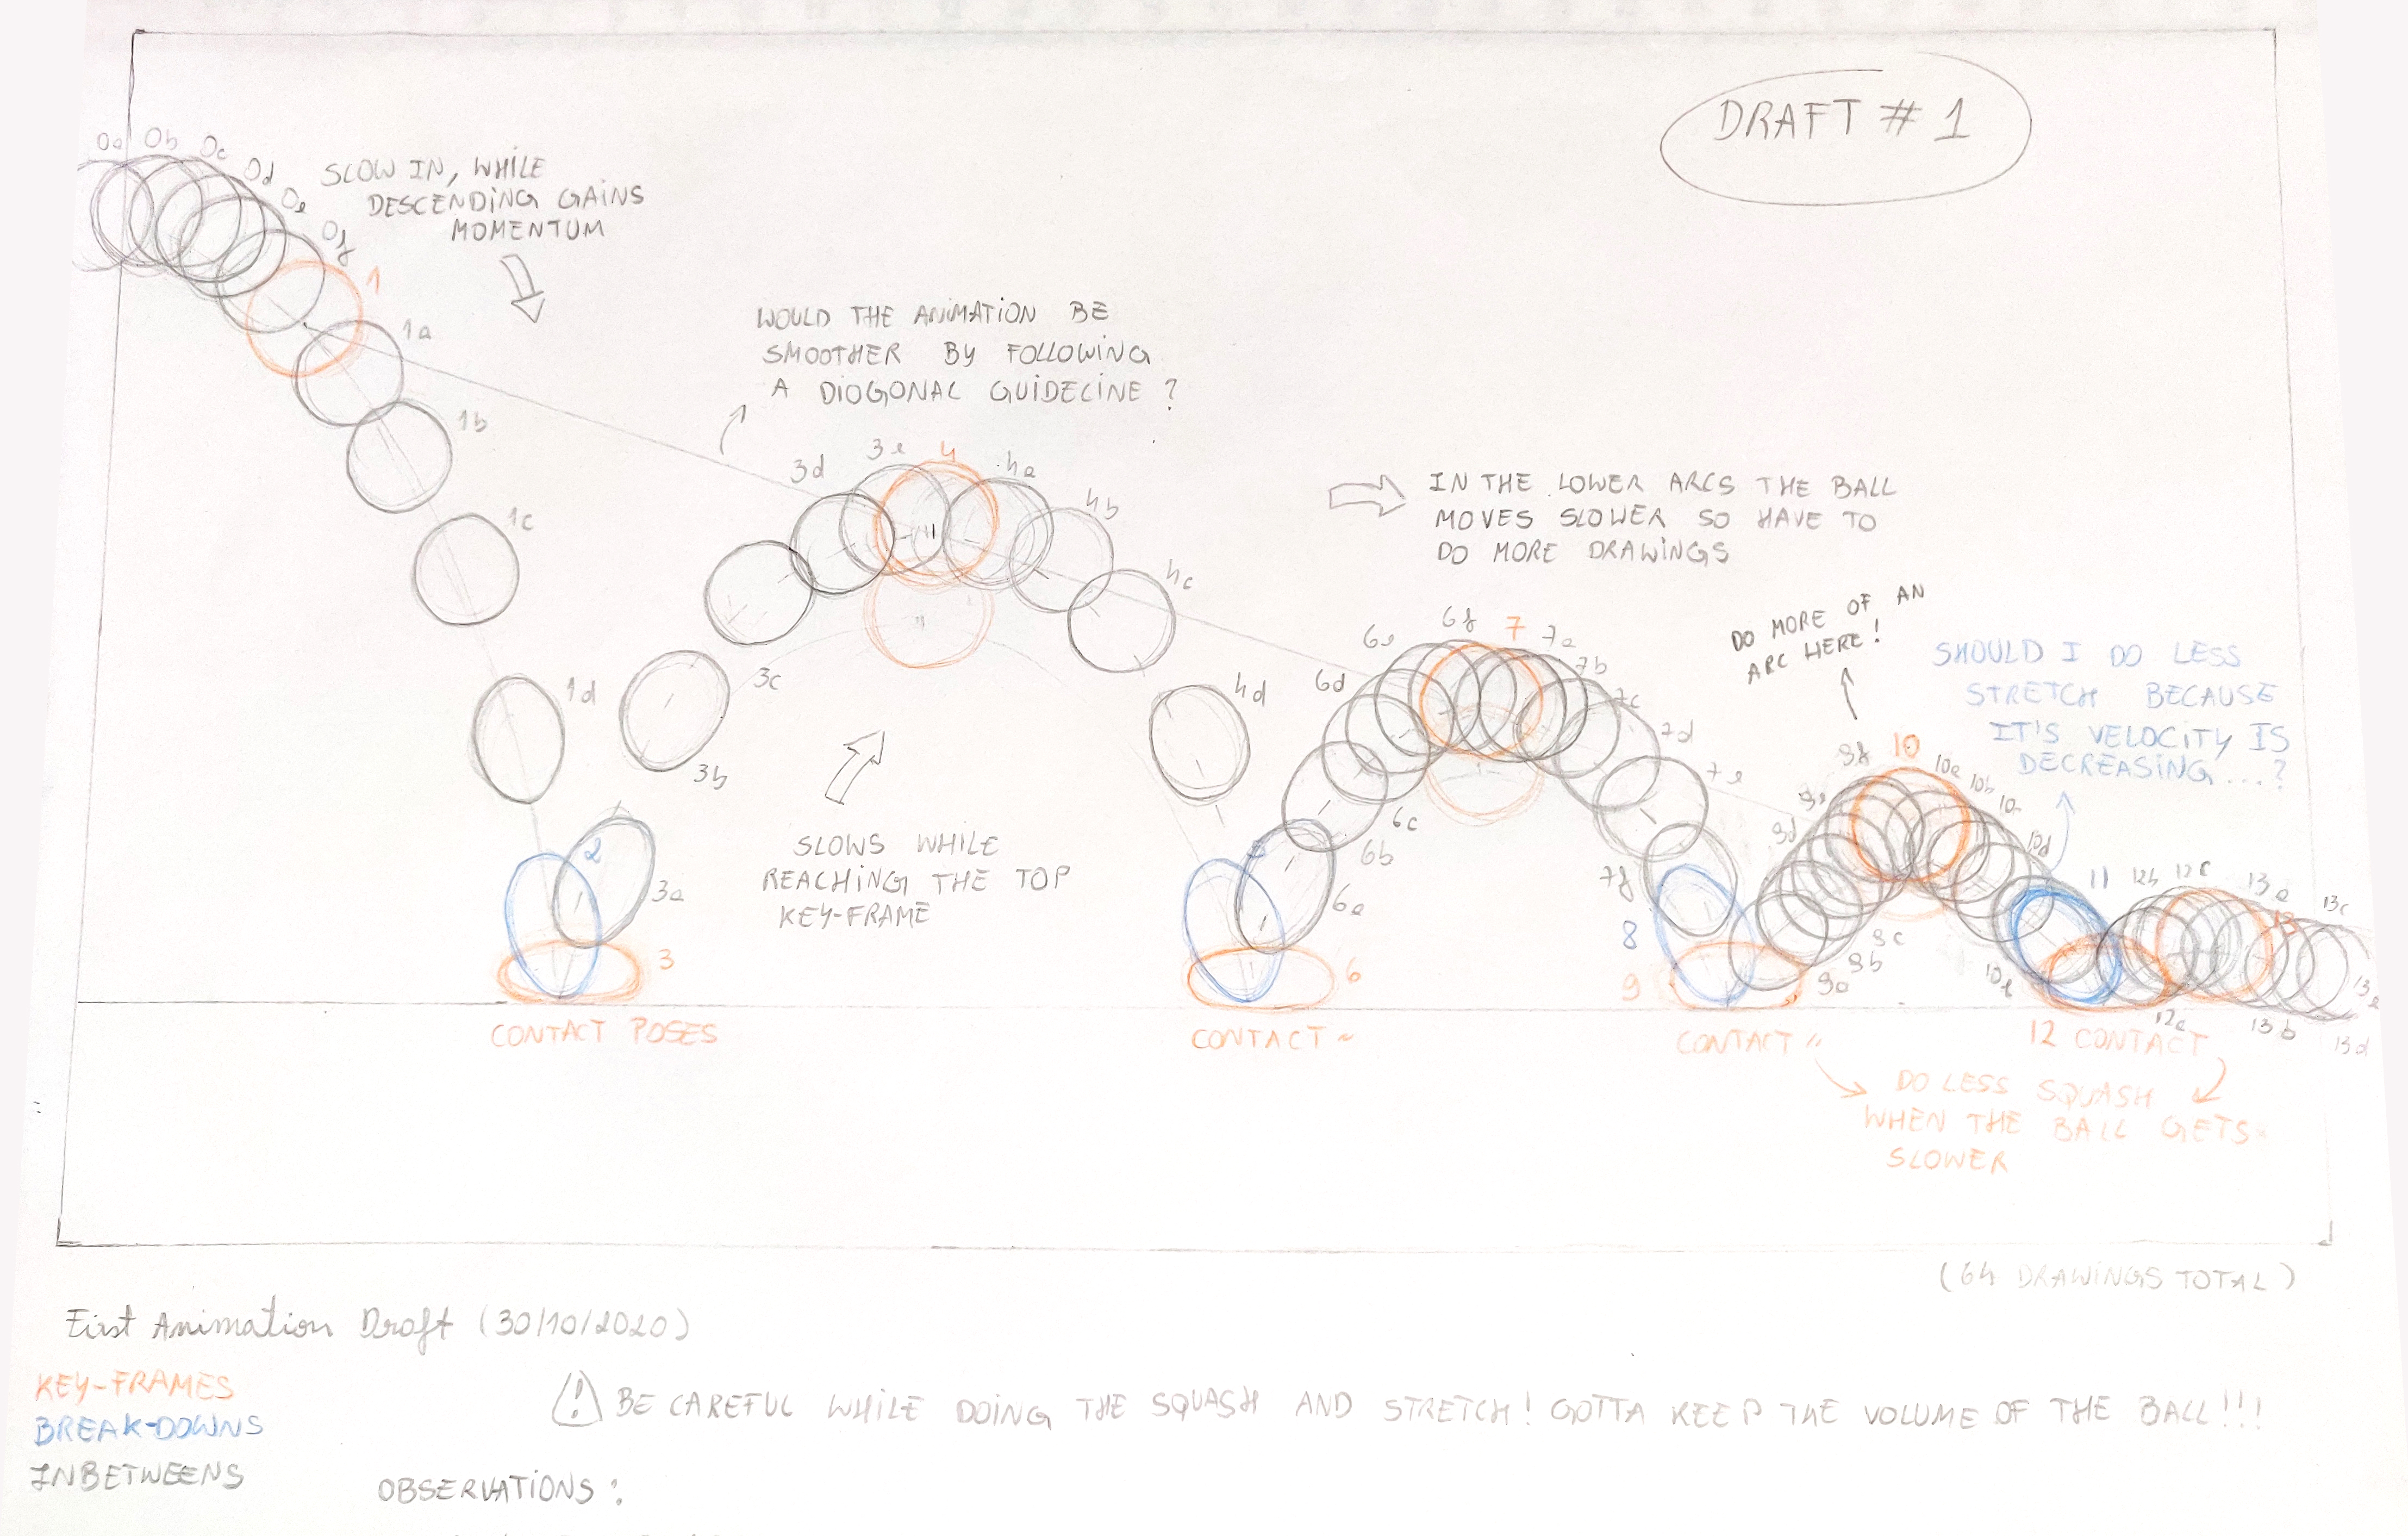 DRAFT # 1
0a 0b 0c 0d 0e 0f
SLOW IN, WHILE
DESCENDING GAINS
MOMENTUM
1
1a
1b
1c
1d
WOULD THE ANIMATION BE
SMOOTHER BY FOLLOWING
A DIOGONAL GUIDELINE ?
2
3
3a
3b
3c
3d
3e
4
4a
4b
4c
4d
IN THE LOWER ARCS THE BALL
MOVES SLOWER SO HAVE TO
DO MORE DRAWINGS
SLOWS WHILE
REACHING THE TOP
KEY-FRAME
6
6a
6b
6c
6d
6e
6f
7
7a
7b
7c
7d
7e
7f
8
DO MORE OF AN
ARC HERE!
SHOULD I DO LESS
STRETCH BECAUSE
IT'S VELOCITY IS
DECREASING...?
9
9a
9b
9c
9d
9e
9f
10
10a
10b
10d
10e
11
12a
12b
12c
13
13a
13b
13c
13d
13e
CONTACT POSES
CONTACT ~
CONTACT "
12 CONTACT
DO LESS SQUASH
WHEN THE BALL GETS
SLOWER
(64 DRAWINGS TOTAL)
First Animation Draft (30/10/2020)
KEY-FRAMES
BREAK-DOWNS
INBETWEENS
! BE CAREFUL WHILE DOING THE SQUASH AND STRETCH! GOTTA KEEP THE VOLUME OF THE BALL!!!
OBSERVATIONS: